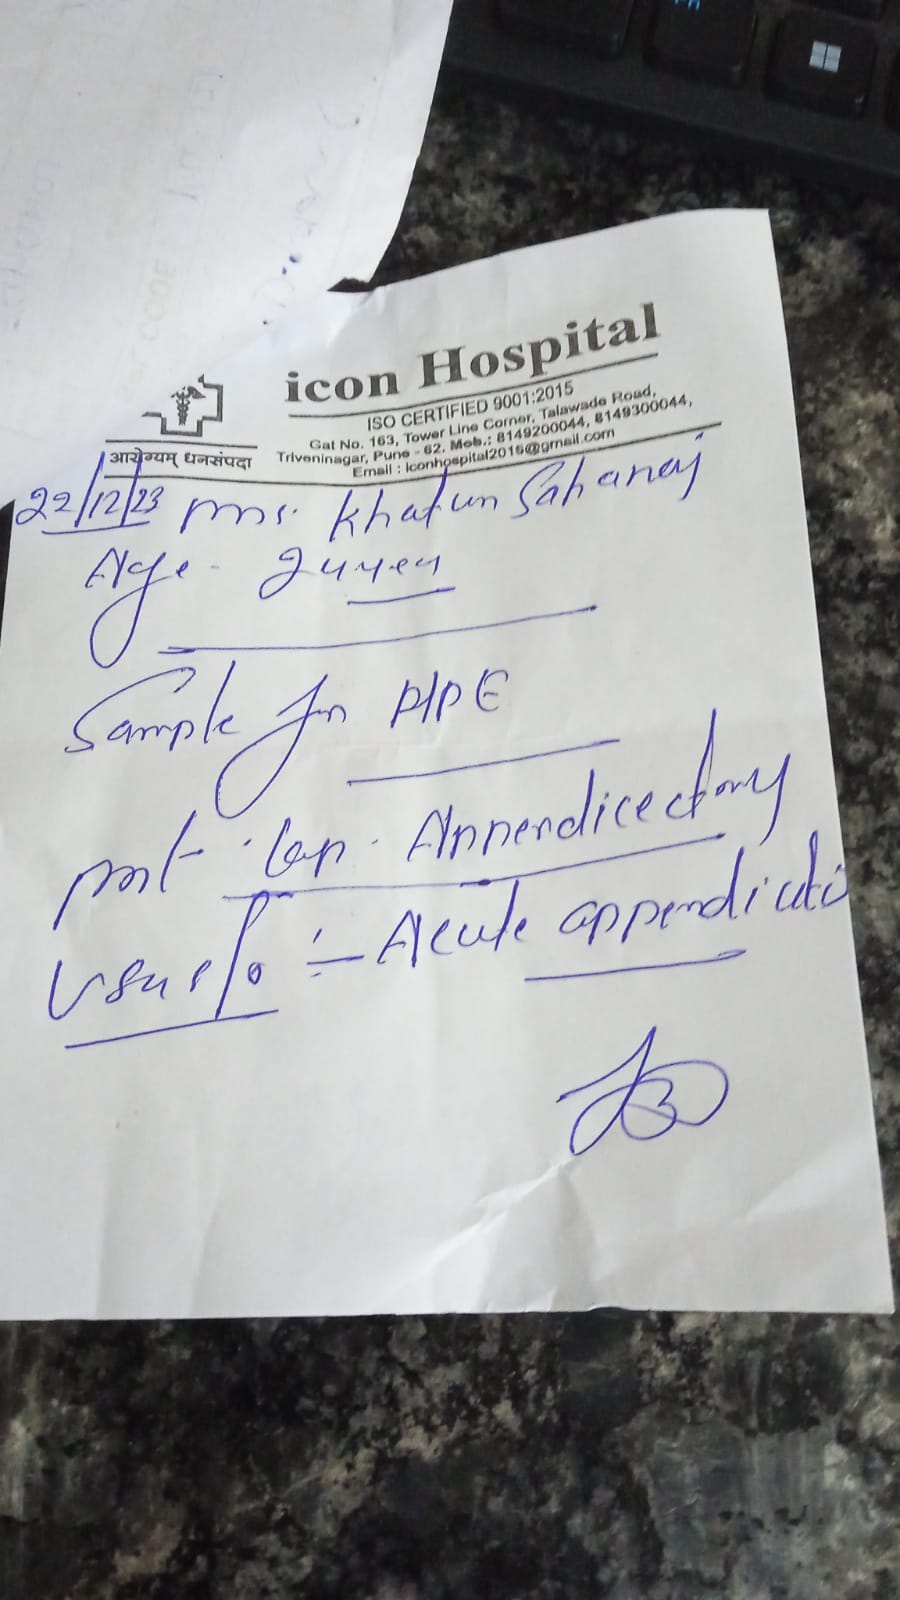 icon Hospital
ISO CERTIFIED 9001:2015
Gat No. 163, Tower Line Corner, Talawade Road,
Triveninagar, Pune - 62. Mob.: 8149200044, 8149300044,
Email : iconhospital2016@gmail.com
आरोग्यम् धनसंपदा
22/12/23 Khatun
Age -
Sample for HPE
post lap. Appendicectomy
:- Acute appendiciti